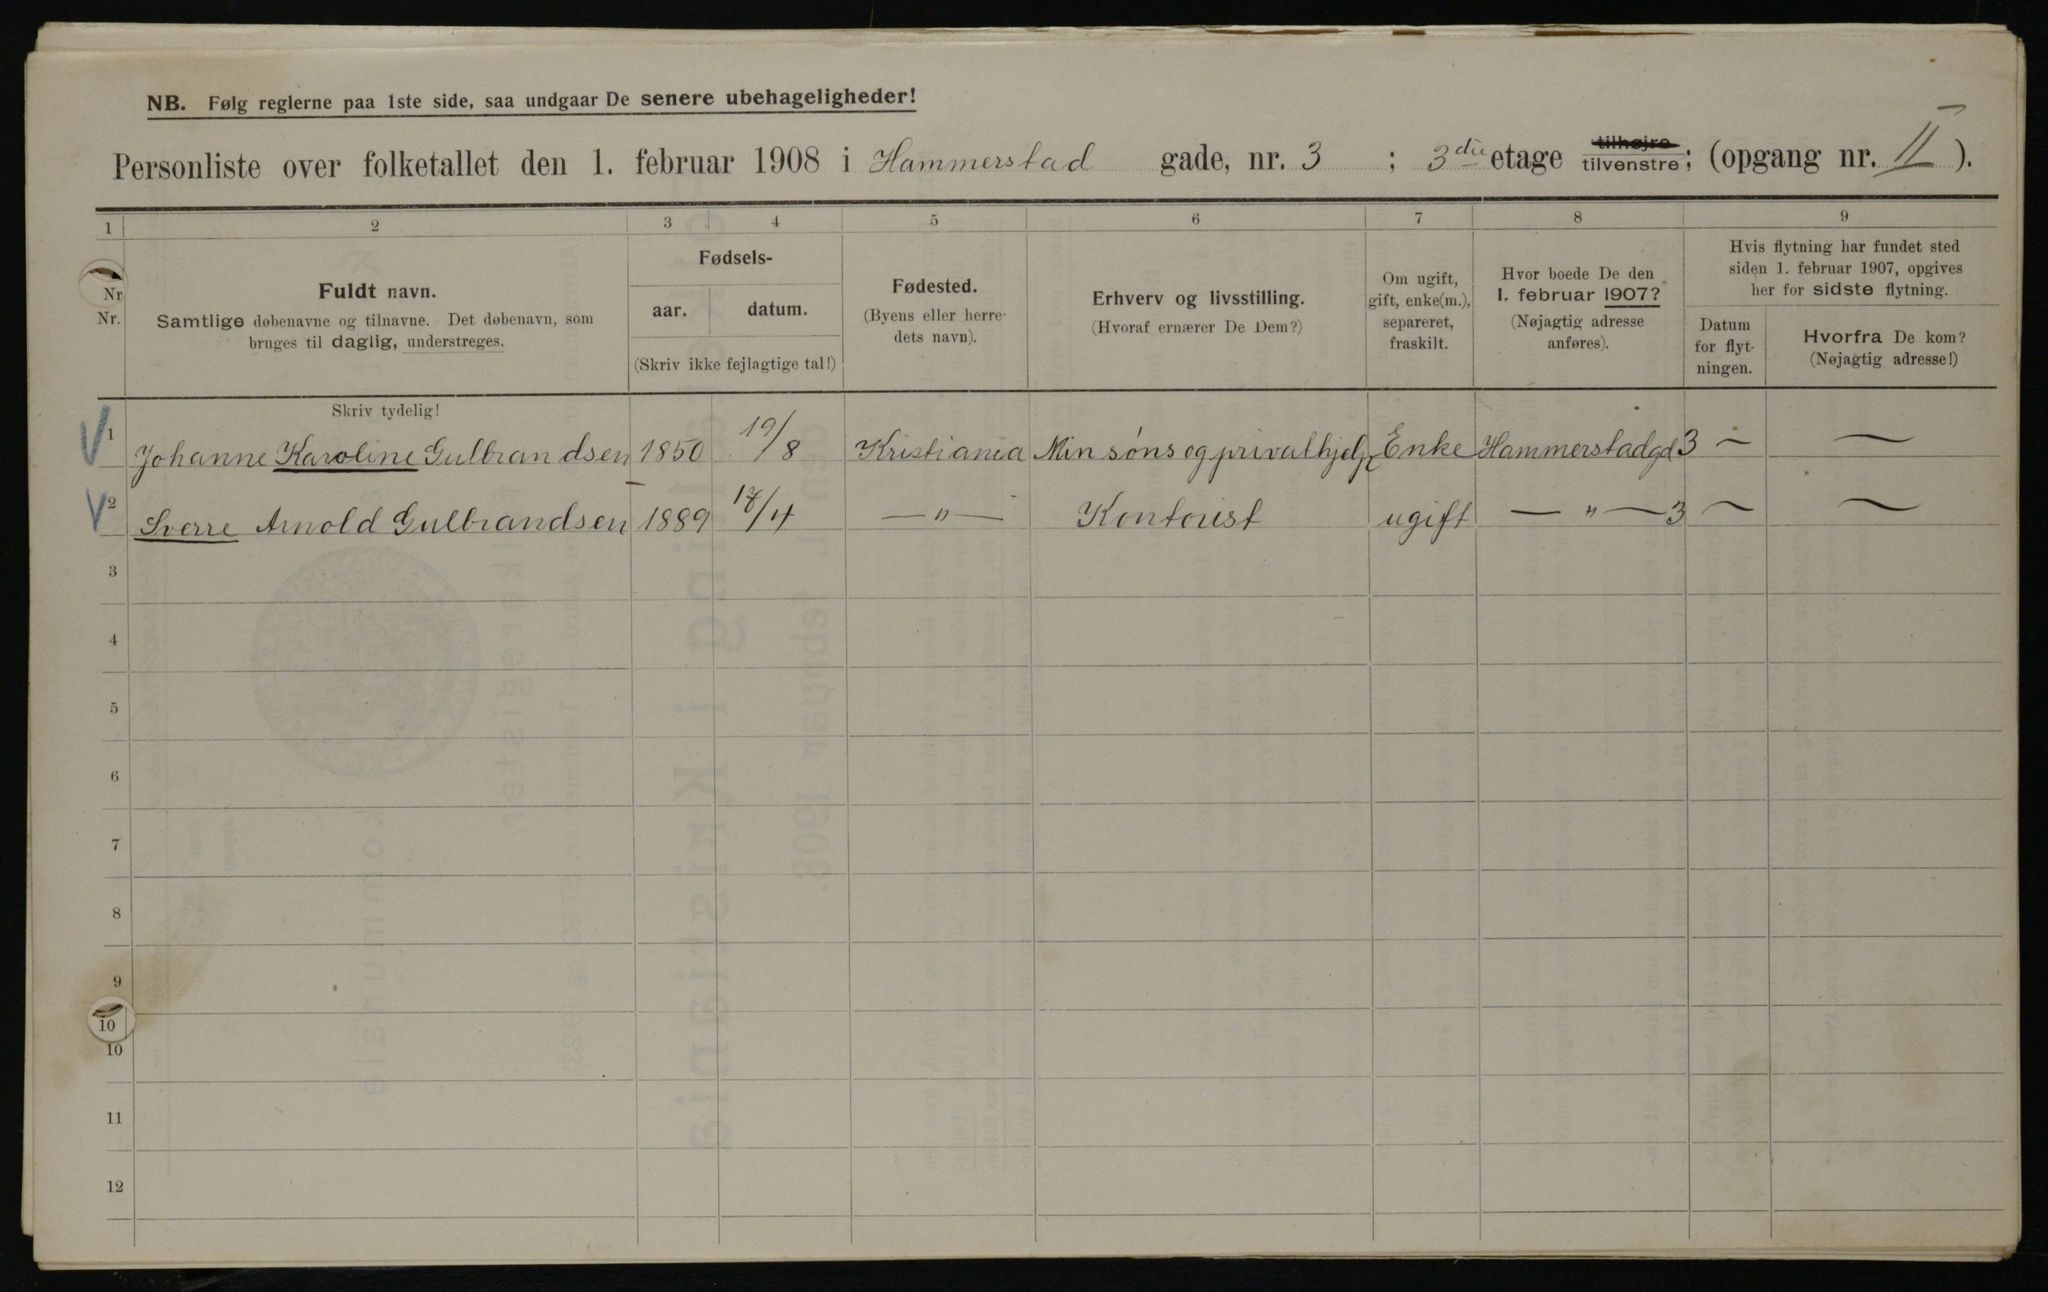 NB. Følg reglerne paa 1ste side, saa undgaar De senere ubehageligheder!
Personliste over folketallet den 1. februar 1908 i Hammerstad gade, nr. 3 ; 3die etage tilhøjre tilvenstre; (opgang nr. II ).
1 2 3 4 5 6 7 8 9
Nr. Nr.
Fuldt navn.
Samtlige døbenavne og tilnavne. Det døbenavn, som
bruges til daglig, understreges.
Fødsels-
aar. datum.
(Skriv ikke fejlagtige tal!)
Fødested.
(Byens eller herre-
dets navn).
Erhverv og livsstilling.
(Hvoraf ernærer De Dem?)
Om ugift,
gift, enke(m.),
separeret,
fraskilt.
Hvor boede De den
1. februar 1907?
(Nøjagtig adresse
anføres).
Hvis flytning har fundet sted
siden 1. februar 1907, opgives
her for sidste flytning.
Datum
for flyt-
ningen.
Hvorfra De kom?
(Nøjagtig adresse!)
Skriv tydelig!
1 Johanne Karoline Gulbrandsen 1850 19/8 Kristiania Min søns og privathjelp Enke Hammerstadgd 3 — —
2 Sverre Arnold Gulbrandsen 1889 /4 — " — Kontorist ugift — " — 3 — —
3
4
5
6
7
8
9
10
10
11
12